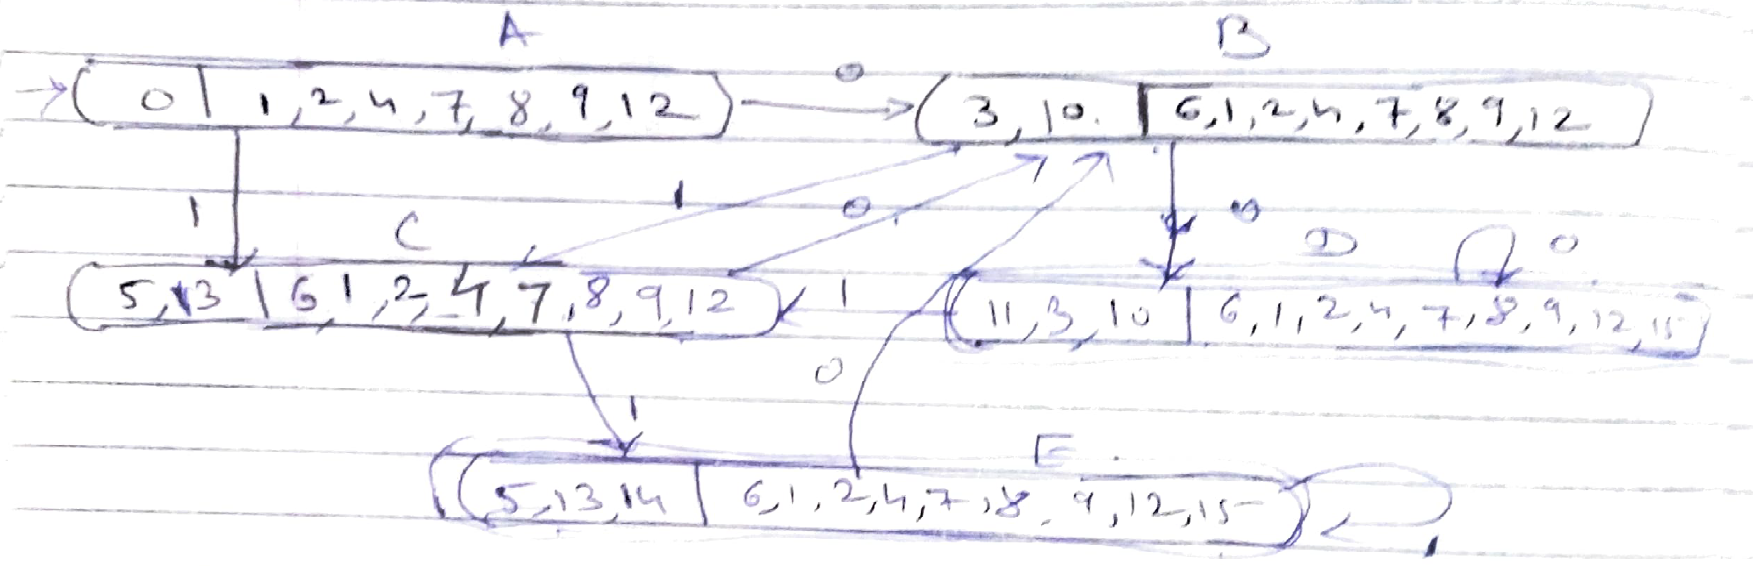 A B
0 | 1,2,4,7,8,9,12 0 3,10. | 6,1,2,4,7,8,9,12
1 1 0 0
C D 0
5,13 | 6,1,2,4,7,8,9,12 1 11,3,10 | 6,1,2,4,7,8,9,12,15
0
1 E
5,13,14 | 6,1,2,4,7,8,9,12,15 1